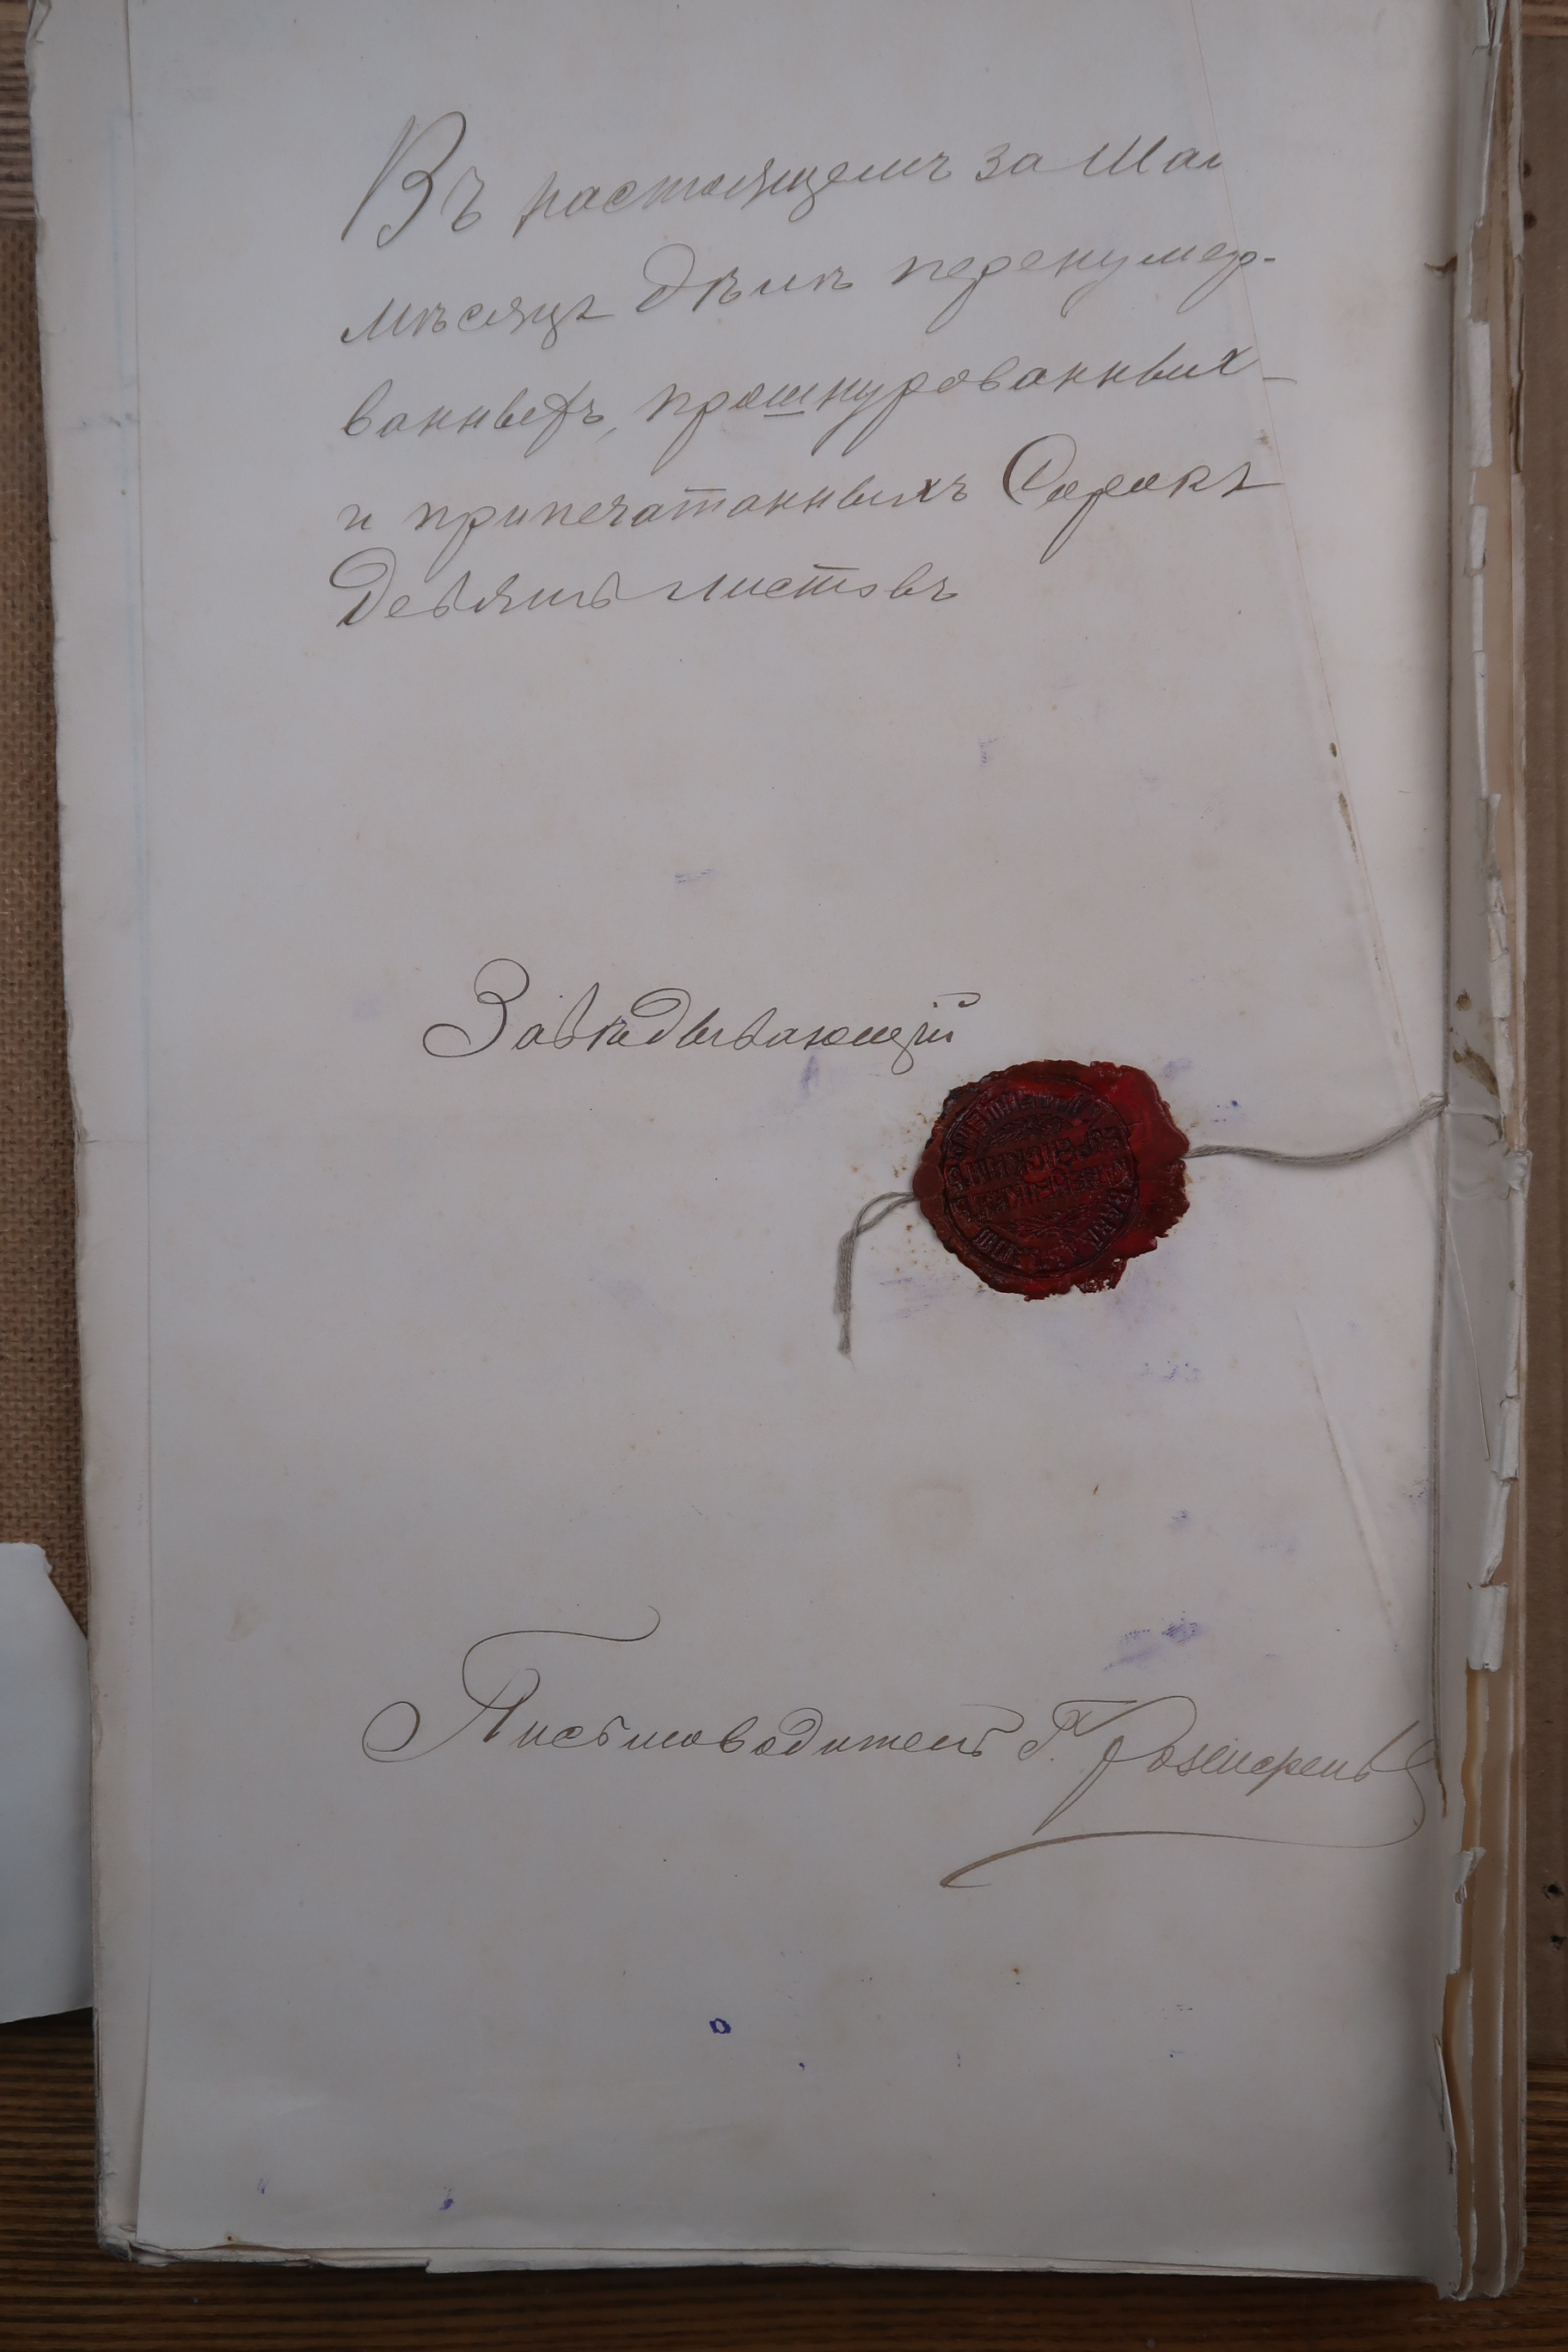 Въ настоящемъ за Май
мѣсяцъ дѣлѣ перенумер-
ванныхъ, прошнурованных
и припечатанныхъ Сорокъ
Девять листовъ
Завѣдывающій
Письмоводитель Г.